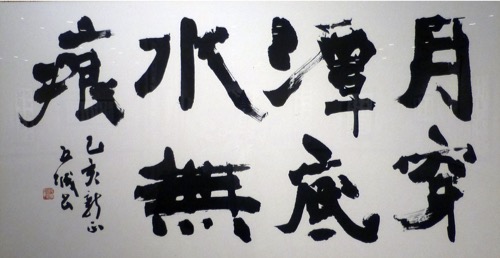 月穿
潭底
水無
痕
乙亥新正